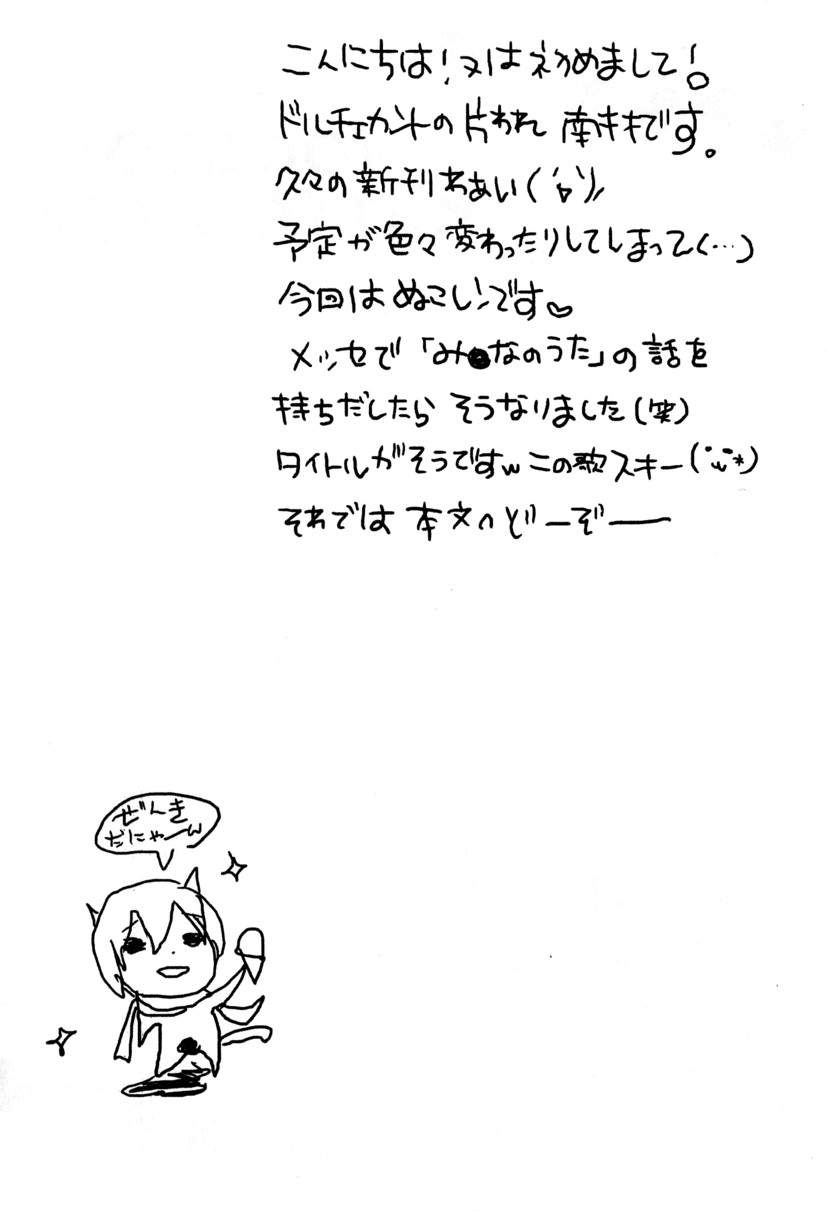 こんにちは!又は初めまして!
ドルチェカントの片われ 南キキです。
久々の新刊わあい(´ロ`)ノ
予定が色々変わったりしてしまって(…)
今回はぬこレンです♡
メッセで「み●なのうた」の話を
持ちだしたら そうなりました(笑)
タイトルがそうですw この歌スキー(˙ω˙*)
それでは 本文へどーぞー
ぜんき
だにゃーw